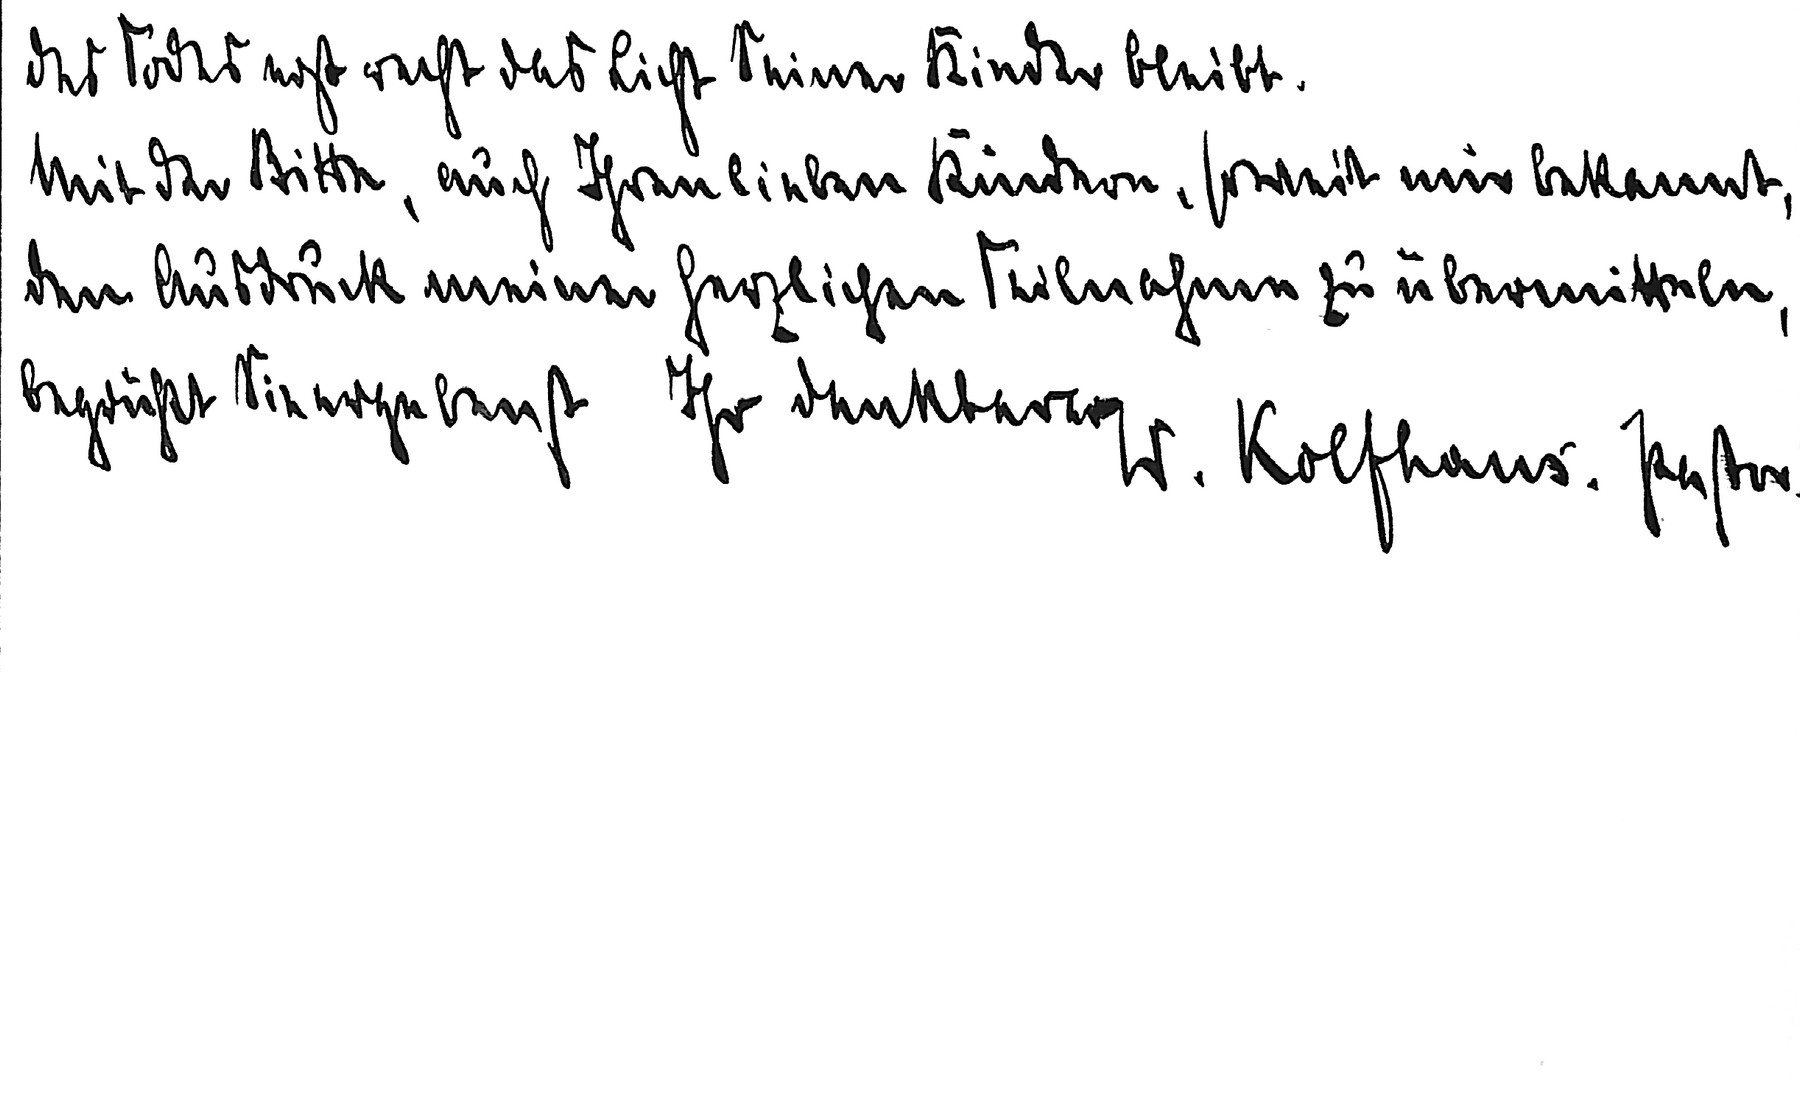 des Todes erst recht das Licht Seiner Kinder bleibt.
Mit der Bitte, auch Ihren lieben Kindern, soweit mir bekannt,
den Ausdruck meiner herzlichen Teilnahme zu übermitteln,
begrüßt Sie ergebenst Ihr dankbarer
W. Kolfhaus. Pastor.